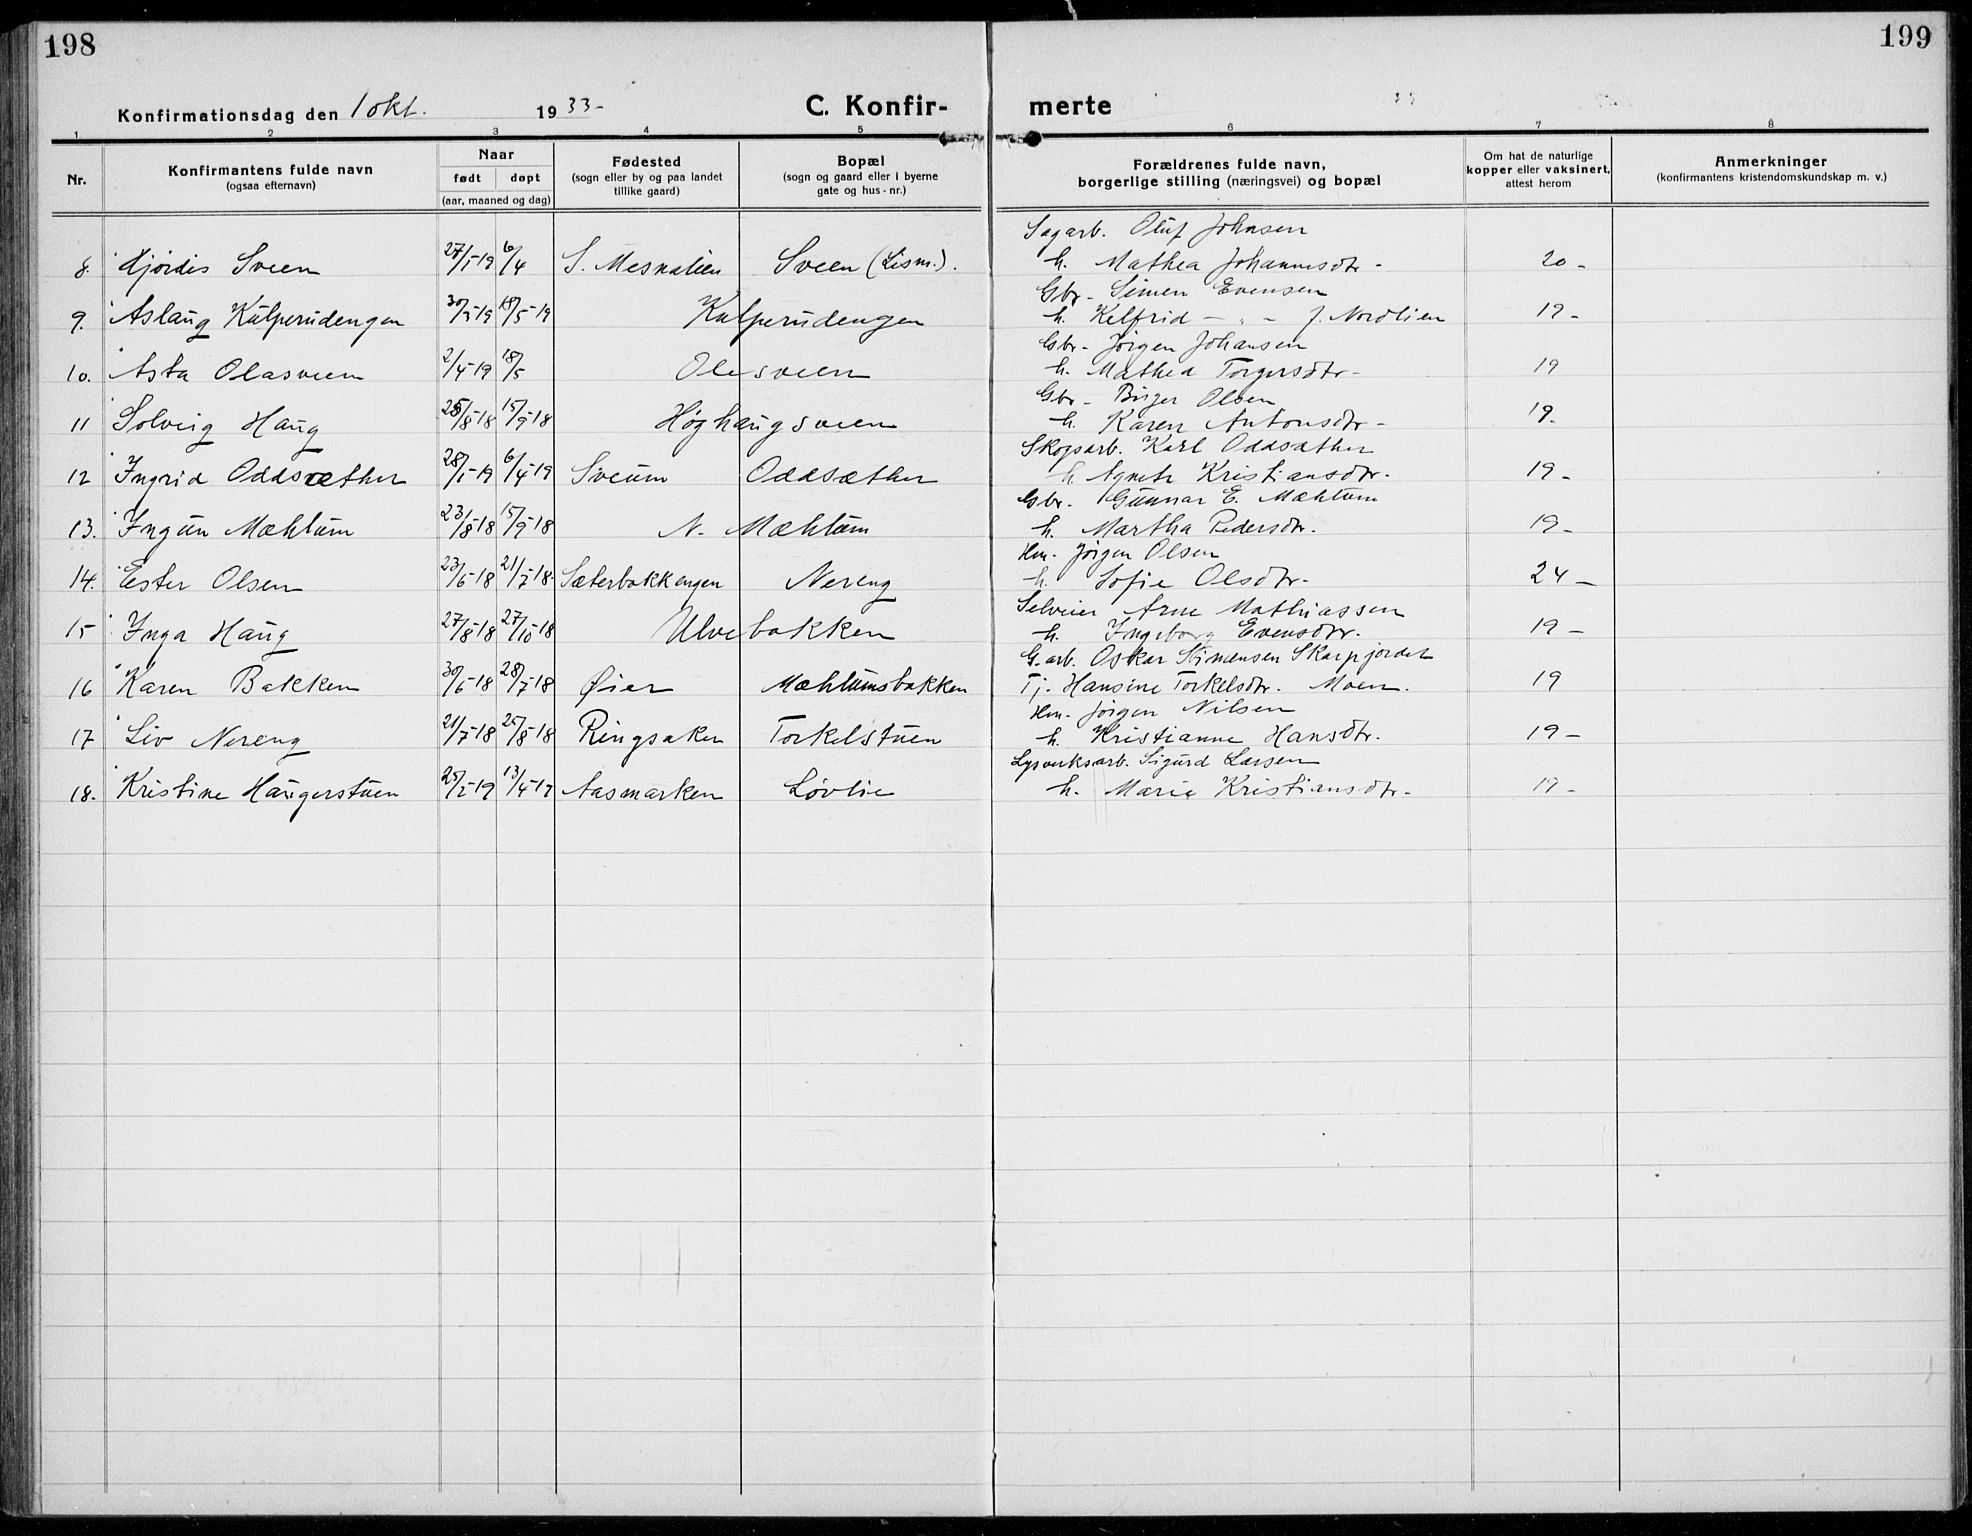 198
199
Konfirmationsdag den 1 okt. 1933-
C. Konfir-
merte
1 2 3 4 5 6 7 8
Nr.
Konfirmantens fulde navn
(ogsaa efternavn)
Naar
født døpt
(aar, maaned og dag)
Fødested
(sogn eller by og paa landet
tillike gaard)
Bopæl
(sogn og gaard eller i byerne
gate og hus - nr.)
Forældrenes fulde navn,
borgerlige stilling (næringsvei) og bopæl
Om hat de naturlige
kopper eller vaksinert,
attest herom
Anmerkninger
(konfirmantens kristendomskundskap m. v.)
Sagarb. Oluf Johnsen
8. Hjördis Sveen 27/1-19 6/4 S. Mesnalien Sveen (Lism.). h. Mathea Johannesdtr - 20 -
Gbr - Simen Evensen
9. Aslaug Kulperudengen 30/3-19 18/5-19 Kulperudengen h. Kelfrid - „ - f. Nordlien 19 -
Gbr - Jørgen Johansen
10. Asta Olasveen 2/4-19 18/5 Olasveen h. Mathea Torgersdtr - 19
Gbr - Birger Olsen
11 Solveig Haug 25/8-18 15/9-18 Høghaugsveen h. Karen Antonsdtr - 19.
Skogsarb. Karl Oddsæther
12 Ingrid Oddsæther 28/1-19 6/4-19 Sveum Oddsæther h. Agnethe Kristiansdtr. 19 -
Gbr. Gunnar E. Mæhlum
13. Ingun Mæhlum 23/8-18 15/9-18 N. Mæhlum h. Martha Pedersdtr. 19 -
Hm. Jørgen Olsen
14. Ester Olsen 23/6-18 21/7-18. Sæterbakkengen Nereng h. Sofie Olsdtr. 24 -
Selveier Arne Mathiassen
15 Inga Haug 27/8-18 27/10-18 Ulvebakken h. Ingeborg Evensdtr. 19 -
G.arb. Oskar Simensen Skarpjordet
16 Karen Bakken 30/6-18 28/7-18 Øier Mæhlumsbakken Tj. Hansine Torkelsdtr. Moen. 19
Hm. Jørgen Nilsen
17 Liv Nereng 21/7-18 25/8-18 Ringsaker Torkelstuen h. Kristianne Hansdtr. 19 -
Lysverksarb. Sigurd Larsen
18. Kristine Haugerstuen 25/2-19 13/4-19 Aasmarken Løvlie h. Marie Kristiansdtr. 19 -